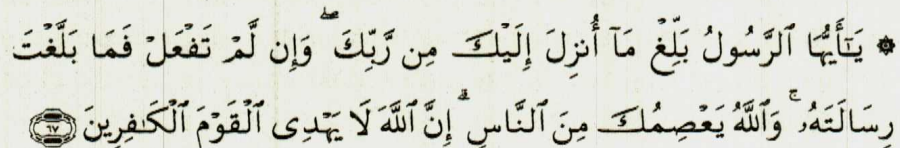 ۞ يَـٰٓأَيُّهَا ٱلرَّسُولُ بَلِّغْ مَآ أُنزِلَ إِلَيْكَ مِن رَّبِّكَ ۖ وَإِن لَّمْ تَفْعَلْ فَمَا بَلَّغْتَ
رِسَالَتَهُۥ ۚ وَٱللَّهُ يَعْصِمُكَ مِنَ ٱلنَّاسِ ۗ إِنَّ ٱللَّهَ لَا يَهْدِى ٱلْقَوْمَ ٱلْكَـٰفِرِينَ ۝٦٧